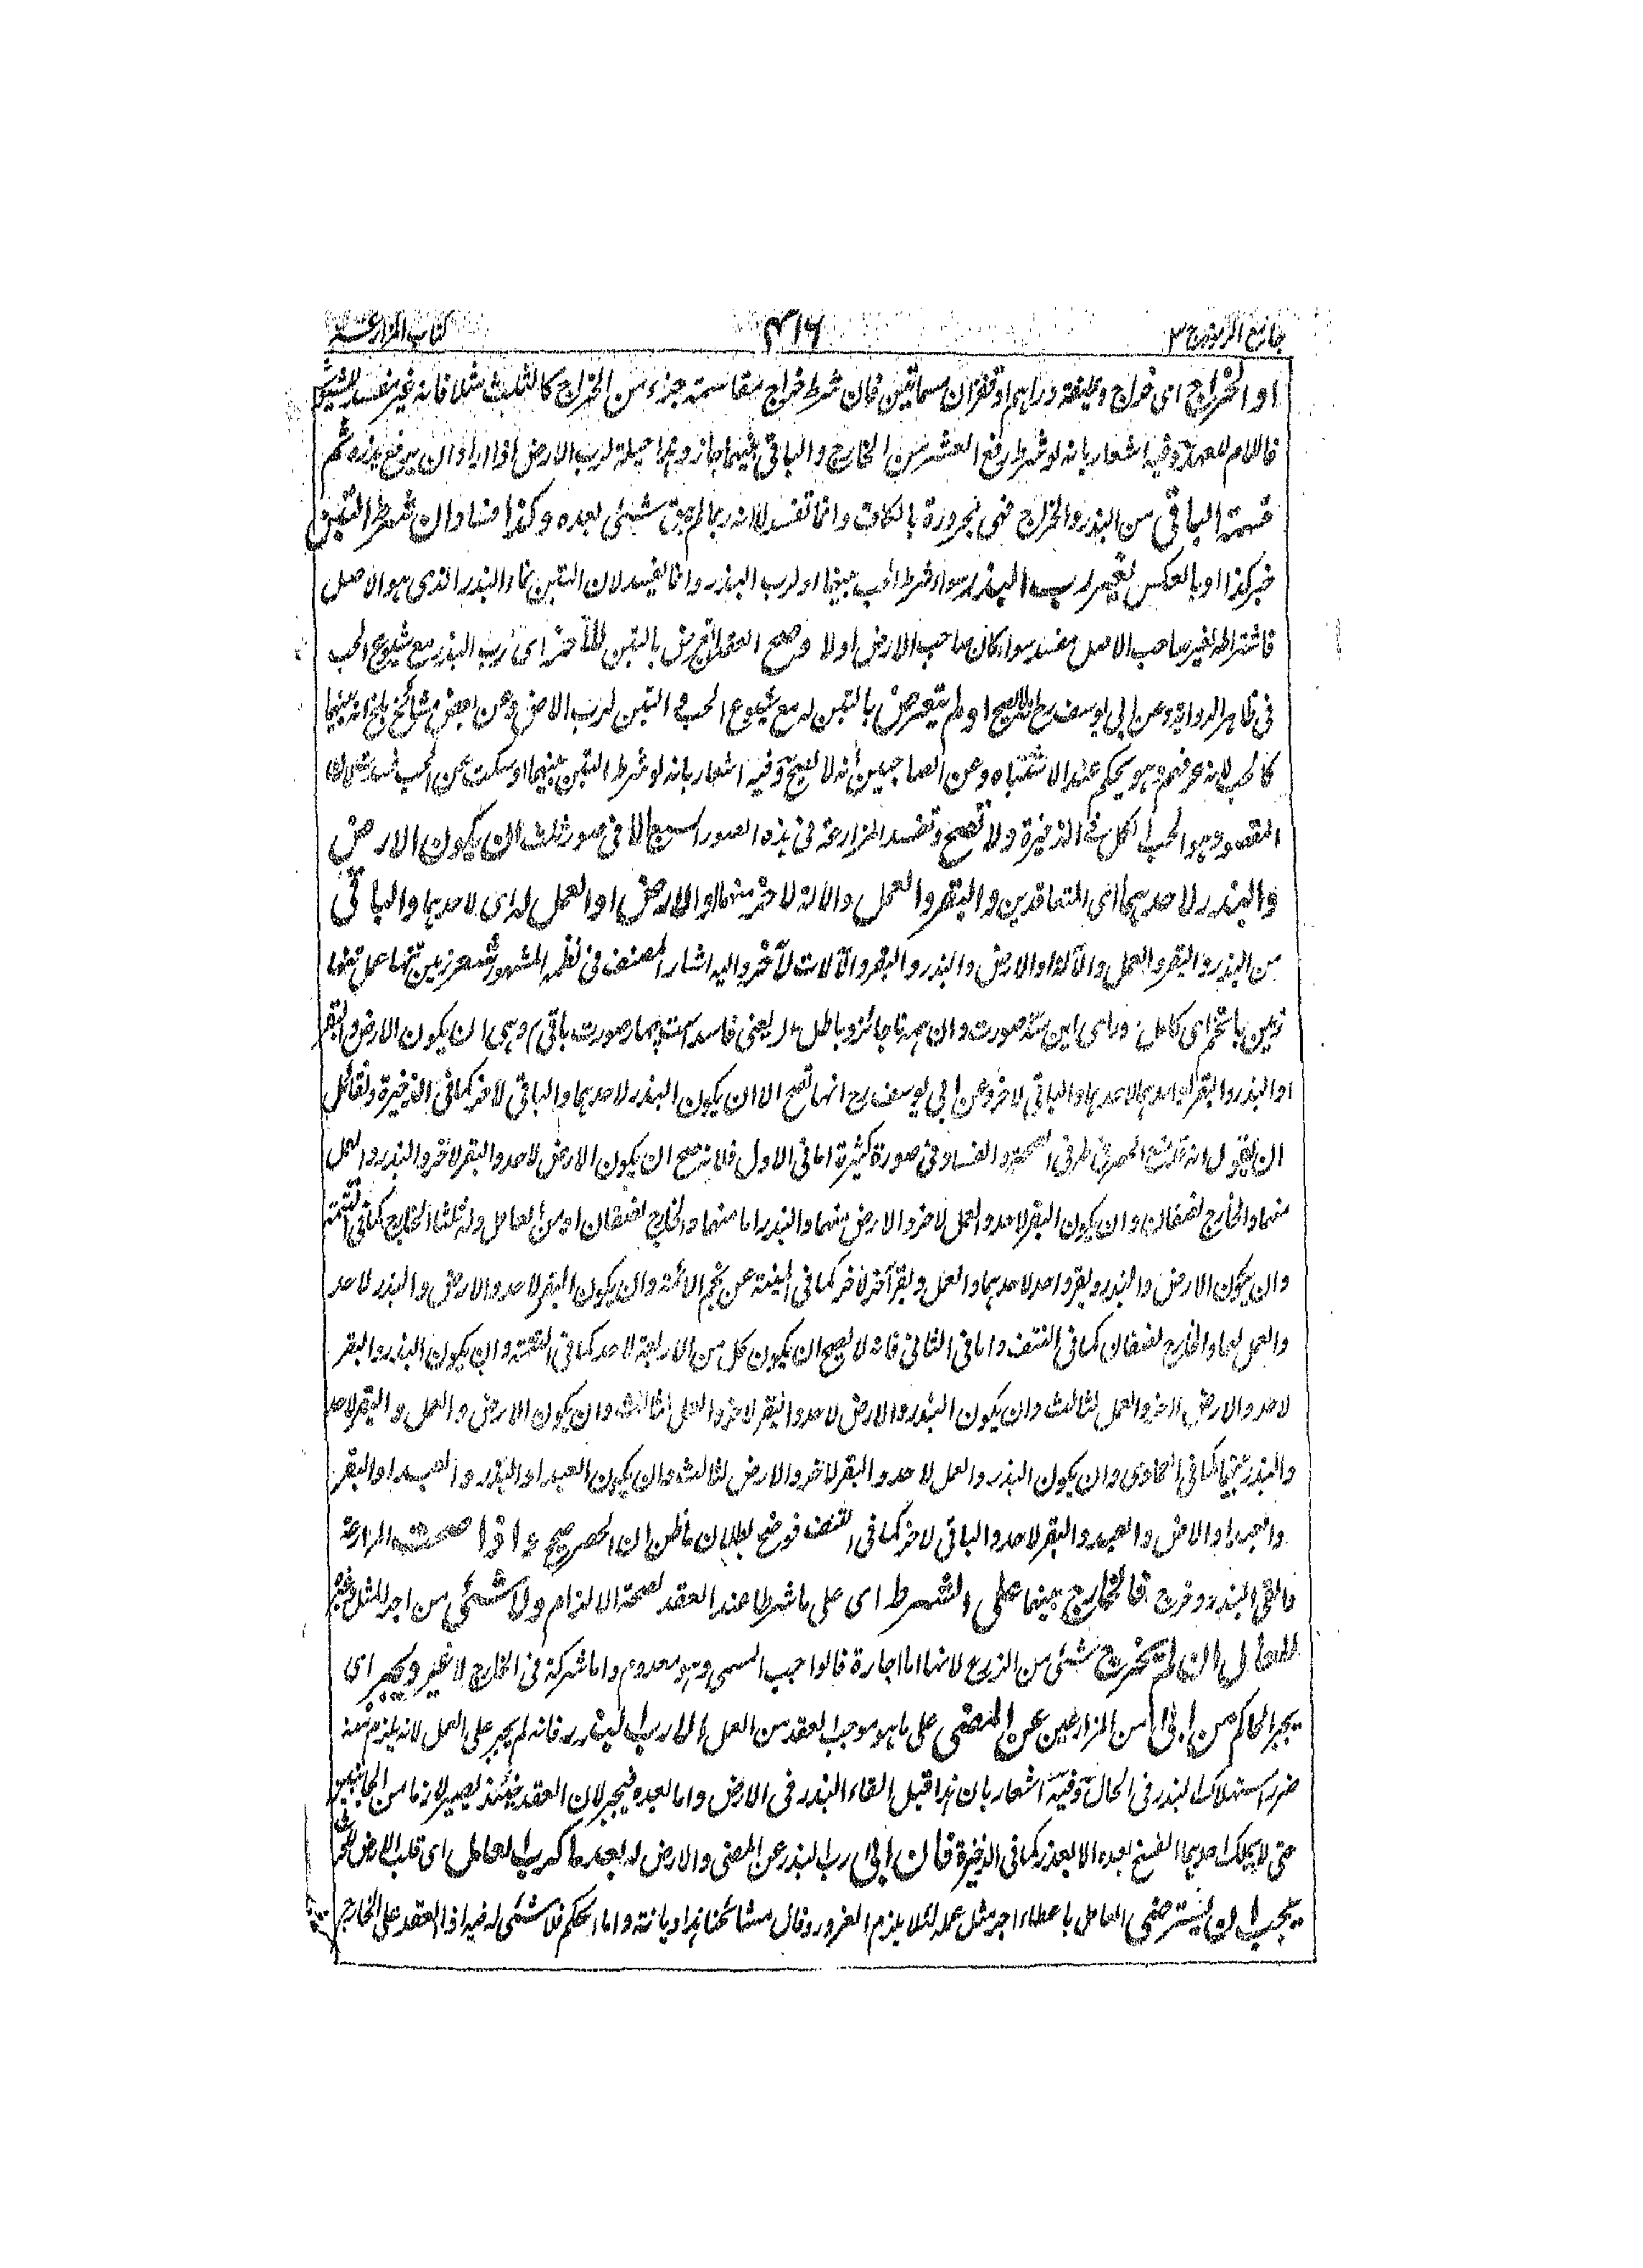 جامع الرموز ج ٣ ٤١٦ كتاب المزارعة
او الخراج اى خراج وظيفة دراهم او قفزان مسماتين فان شرط خراج مقاسمة جزء من الخراج كالثلث مثلا فانه غير مفسد للشيوع
فاللام للعهد وفيه اشعار بانه لو شرط رفع العشر من الخارج والباقى بينهما جاز وهذا حيلة لرب الارض اذا اراد ان يرفع بذره ثم
قسمة الباقى من البذر والخراج فهى مجرورة بالكاف وانما تفسد لانه ربما لم يبق شيئ بعده وكذا فساد ان شرط التبن
خبر كذا او بالعكس لغير رب البذر سواء شرط الحب بينهما او لرب البذر وانما يفسد لان التبن نماء البذر الذى هو الاصل
فاشتراطه لغير صاحب الاصل مفسد سواء كان صاحب الارض او لا وصح العقد ان تعرض بالتبن للآخر اى رب البذر مع شيوع الحب
فى ظاهر الرواية وعن ابى يوسف رح انه لا يصح او لم يتعرض بالتبن له مع شيوع الحب فى التبن لرب الارض وعن بعض مشائخ بلخ انه بينهما
كالحب لانه عرفهم وهو يحكم عند الاشتباه وعن الصاحبين انه لا يصح وفيه اشعار بانه لو شرط التبن بينهما وسكت عن الحب فسدت لان
المقصود هو الحب الكل فى الذخيرة ولا تصح وتفسد المزارعة فى هذه الصور السبع الا فى صور ثلث ان يكون الارض
والبذر لاحدهما اى المتعاقدين والبقر والعمل والآلة لآخر منهما او الارض او العمل له اى لاحدهما والباقى
من البذر والبقر والعمل والآلة او الارض والبذر والبقر والآلات لآخر واليه اشار المصنف فى نظمه المشهور شعر زمين تنها عمل تنها
زمين با تخم اى كامل ؛ وراى اين سه صورت دان همه ناجائز و باطل ، اى يعنى فاسد است چهار صورت باقى وهى ان يكون الارض والبقر
او البذر والبقر او احدهما لاحدهما والباقى لآخر وعن ابى يوسف رح انها تصح الا ان يكون البذر لاحدهما والباقى لآخر كما فى الذخيرة ولقائل
ان يقول انه قد منع الحصر فى طرفى الصحة والفساد فى صورة كثيرة اما فى الاول فلانه صح ان يكون الارض لاحد والبقر لآخر والبذر والعمل
منهما والخارج نصفان وان يكون البقر لاحد والعمل لآخر والارض منهما والبذر اما منهما والخارج نصفان او من العامل وله ثلثا الخارج كما فى التتمة
وان يكون الارض والبذر وبقر واحد لاحدهما والعمل وبقر آخر لآخر كما فى المنية عن نجم الائمة وان يكون البقر لاحد والارض والبذر لاحد
والعمل لهما والخارج نصفان كما فى النتف واما فى الثانى فانه لا يصح ان يكون كل من الاربعة لاحد كما فى التتمة وان يكون البذر والبقر
لاحد والارض لآخر والعمل لثالث وان يكون البذر والارض لاحد والبقر لآخر والعمل لثالث وان يكون الارض والعمل والبقر لاحد
والبذر بينهما كما فى الحاوى وان يكون البذر والعمل لاحد والبقر لآخر والارض لثالث وان يكون العبد او البذر والعبد او البقر
والعبد او الارض والعبد والبقر لاحد والباقى لآخر كما فى النتف فوضح بطلان ما ظن ان الحصر صحيح واذا صحت المزارعة
والقى البذر وخرج فالخارج بينهما على الشرط اى على ما شرطا عند العقد لصحة الالتزام ولا شيئ من اجر المثل وغيره
للعامل ان لم يخرج شيئ من الزرع لانها اما اجارة فالواجب المسمى وهو معدوم واما شركة فى الخارج لا غير ويجبر اى
يجبر الحاكم من ابى من المزارعين عن المضى على ما هو موجب العقد من العمل الا رب البذر فانه لم يجبر على العمل لانه يلزم منه
ضرر استهلاك البذر فى الحال وفيه اشعار بان هذا قبل القاء البذر فى الارض واما بعده فيجبر لان العقد حينئذ يصير لازما من الجانبين
حتى لا يملك احدهما الفسخ بعده الا بعذر كما فى الذخيرة فان ابى رب البذر عن المضى والارض له بعد ما كرب العامل اى قلب الارض للحرث
يجب ان يسترضى العامل باعطاء اجر مثل عمله لئلا يلزم الغرور وقال مشائخنا هذا ديانة واما الحكم فلا شيئ له فيه اذ العقد على الخارج